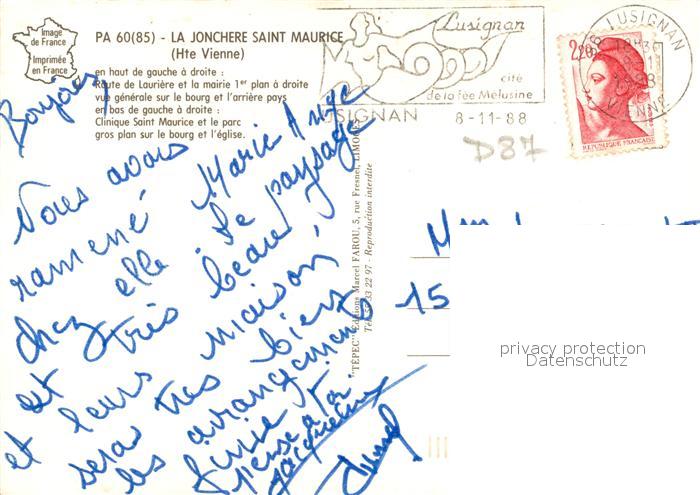 Image
de France
Imprimée
en France
PA 60(85) - LA JONCHERE SAINT MAURICE
(Hte Vienne)
en haut de gauche à droite :
Route de Laurière et la mairie 1er plan à droite
vue générale sur le bourg et l'arrière pays
en bas de gauche à droite :
Clinique Saint Maurice et le parc
gros plan sur le bourg et l'église.
Lusignan
cité
de la fée Mélusine
LUSIGNAN
8-11-88
86 LUSIGNAN
VIENNE
2,20
REPUBLIQUE FRANÇAISE
D87
Bonjour
Nous avons
ramené Marie Ange
chez elle. Le paysage
est très beau,
et leurs maison
sera très bien
les arrangements
finie
Pense à toi
Jacqueline
"TÉPEC" Éditions Marcel FAROU, 5, rue Fresnel, LIMOGES
Tél. 33 22 97 - Reproduction interdite
15
privacy protection
Datenschutz